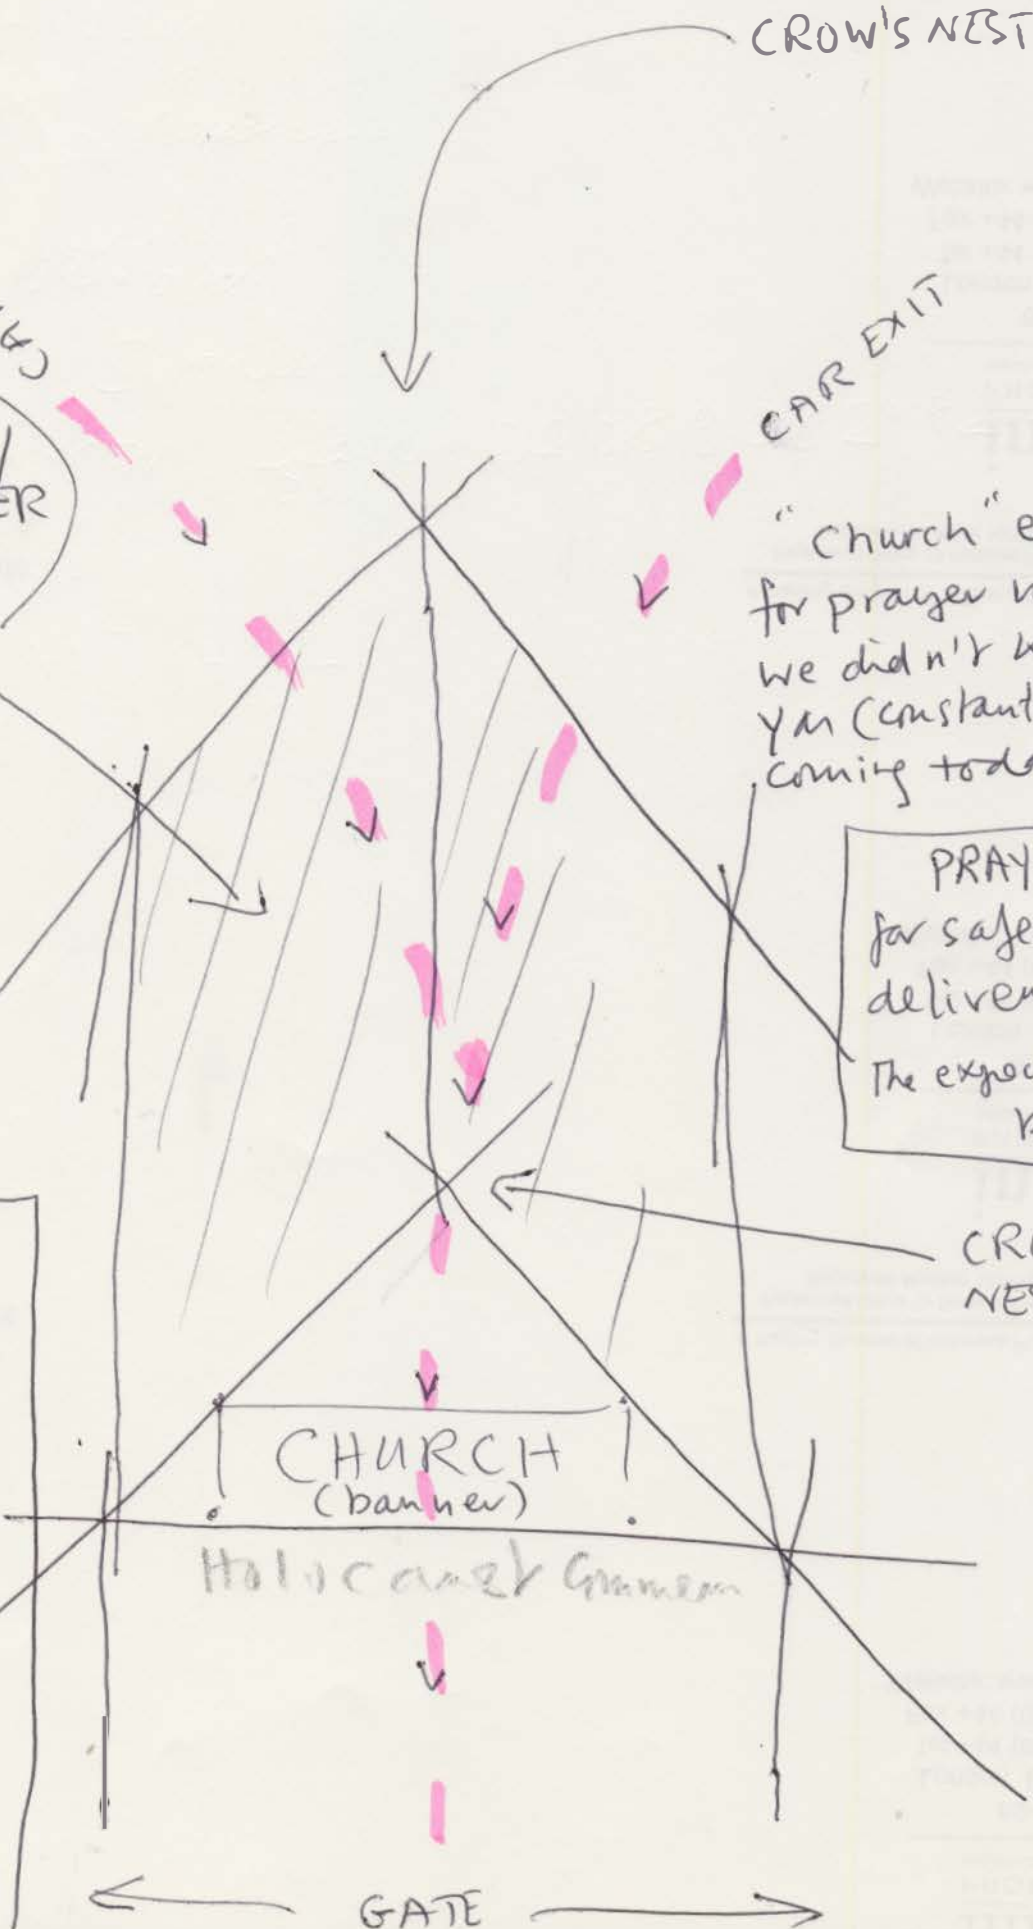 CROW'S NEST
CAR EXIT
CA
ER
"Church" e
for prayer
we didn't
coming toda
PRAY
for safe
deliver
The expec
CRO
NES
CHURCH
(banner)
Holocaust
GATE